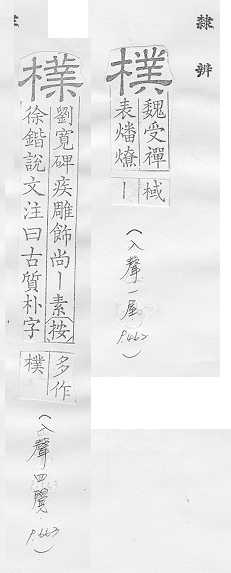 隸辨
樸
魏受禪
表燔燎
棫
丨
(入聲一屋
P.663)
樸
劉寬碑疾雕飾尚丨素(按)
徐鍇說文注曰古質朴字
多作
樸
(入聲四覺
P.663)